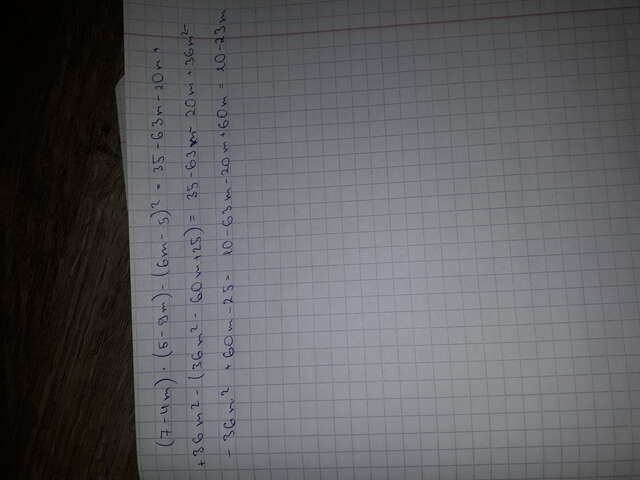 (7-4m) · (5-9m) - (6m-5)² = 35-63m-20m+
+36m² - (36m² - 60m+25) = 35-63m-20m+36m²-
-36m² +60m-25= 10-63m-20m+60m = 10-23m